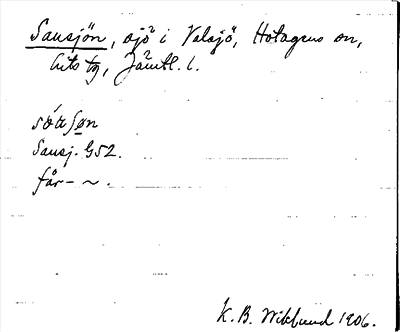 Sausjön, sjö i Valsjö, Hotagens sn,
Lits tg, Jämtl. l.
sǿu ʃøn
Sausj. G52.
får- ~.
K. B. Wiklund 1906.